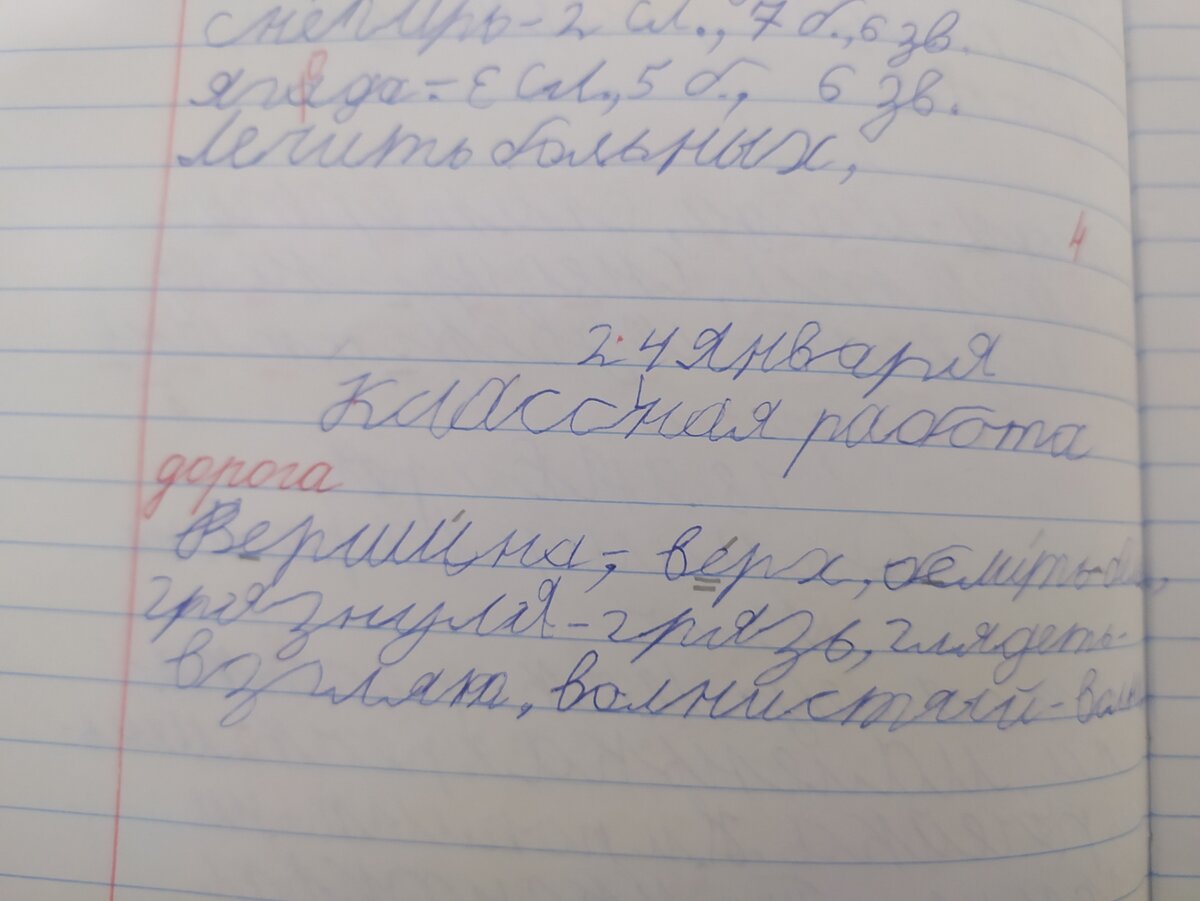 снегирь - 2 сл., 7 б., 6 зв.
ягода - Ɛ сл., 5 б., 6 зв.
Лечить больных,
4
24 января
Классная работа
дорога
Вершина, - верх,
грязнуля - грязь, глядеть -
волнистый -